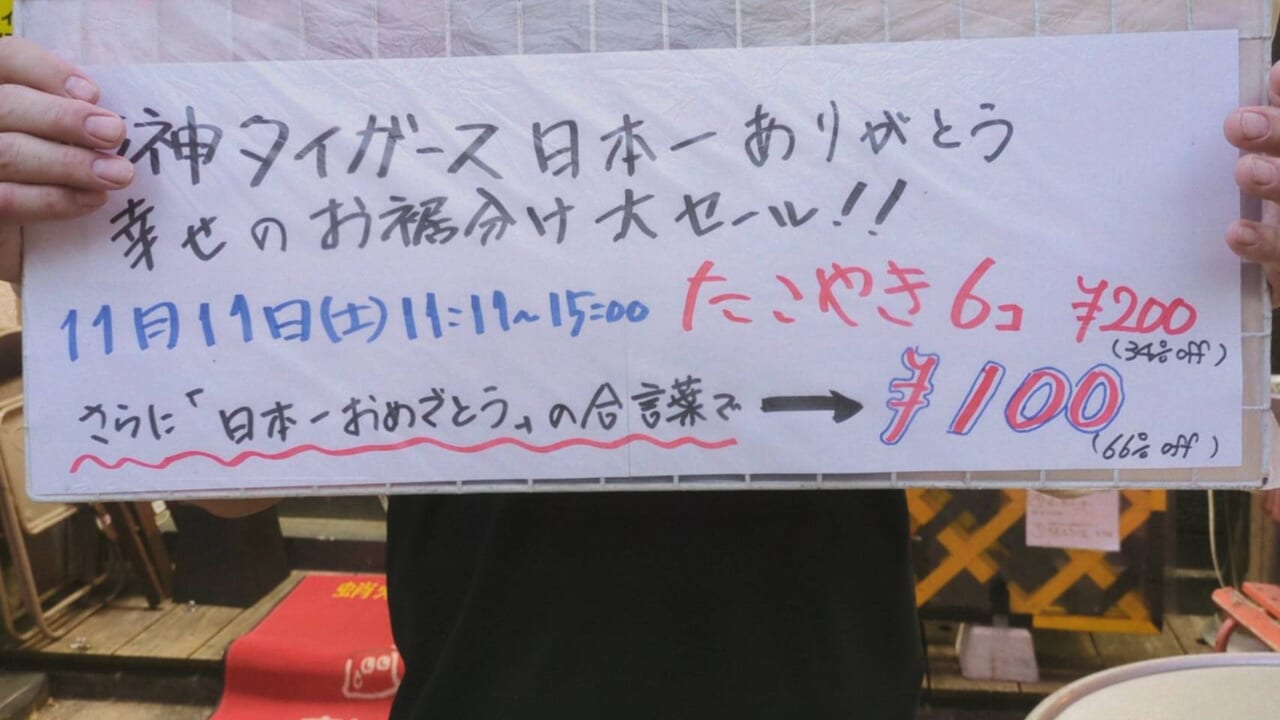 神タイガース 日本一 ありがとう
幸せのお裾分け 大セール!!
11月11日(土)11:11~15:00 たこやき6コ ¥200
(34%off)
さらに「日本一おめでとう」の合言葉で → ¥100
(66%off)